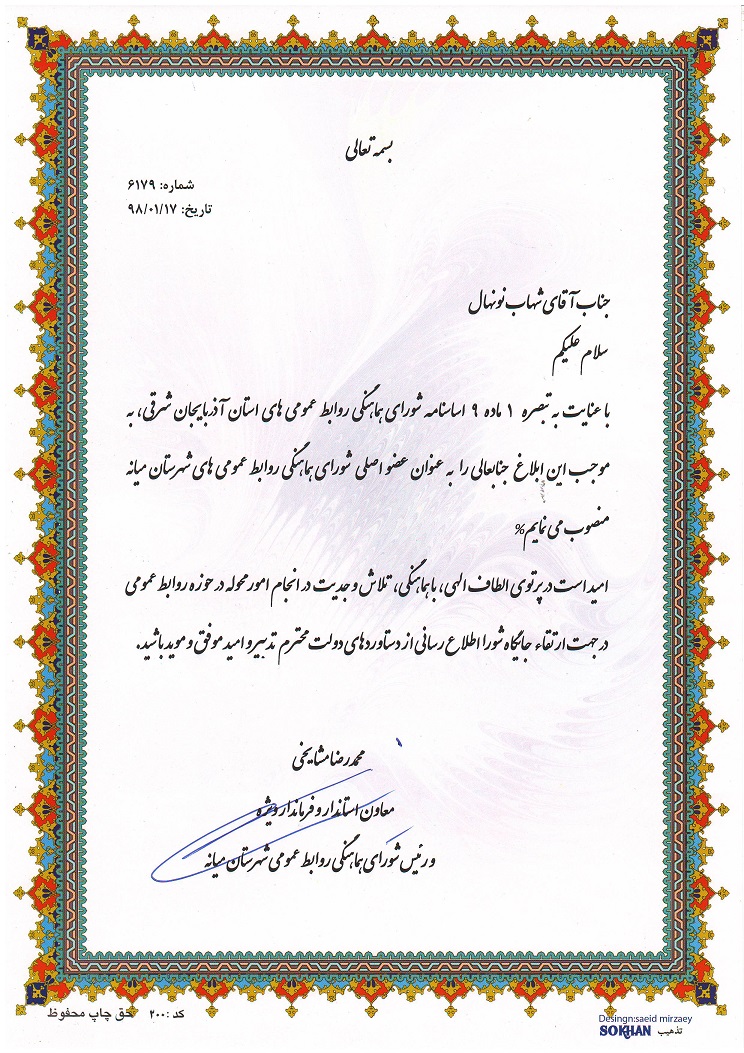 بسمه تعالی
شماره: ۶۱۷۹
تاریخ: ۹۸/۰۱/۱۷
جناب آقای شهاب نونهال
سلام علیکم
با عنایت به تبصره ۱ ماده ۹ اساسنامه شورای هماهنگی روابط عمومی های استان آذربایجان شرقی، به
موجب این ابلاغ جنابعالی را به عنوان عضو اصلی شورای هماهنگی روابط عمومی های شهرستان میانه
منصوب می نمایم%
امید است در پرتوی الطاف الهی، با هماهنگی، تلاش و جدیت در انجام امور محوله در حوزه روابط عمومی
در جهت ارتقاء جایگاه شورا اطلاع رسانی از دستاوردهای دولت محترم تدبیر و امید موفق و موید باشید.
محمدرضا مشایخی
معاون استاندار و فرماندار ویژه
و رئیس شورای هماهنگی روابط عمومی شهرستان میانه
کد :۲۰۰ حق چاپ محفوظ
Desingn:saeid mirzaey
تذهیب SOKHAN